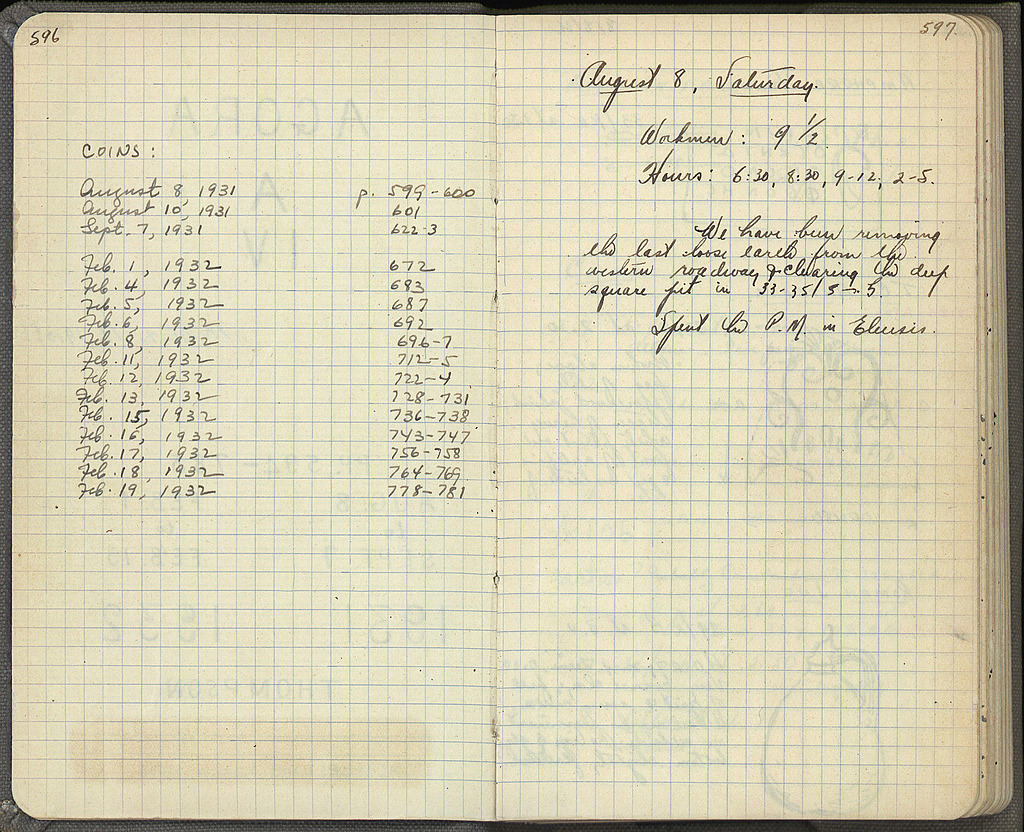 596
COINS:
August 8, 1931 p. 599-600
August 10, 1931 601
Sept. 7, 1931 622-3
Feb. 1, 1932 672
Feb. 4, 1932 683
Feb. 5, 1932 687
Feb. 6, 1932 692
Feb. 8, 1932 696-7
Feb. 11, 1932 712-5
Feb. 12, 1932 722-4
Feb. 13, 1932 728-731
Feb. 15, 1932 736-738
Feb. 16, 1932 743-747
Feb. 17, 1932 756-758
Feb. 18, 1932 764-769
Feb. 19, 1932 778-781
597
August 8, Saturday.
Workmen: 9 1/2.
Hours: 6:30, 8:30, 9-12, 2-5.
We have been removing
the last loose earth from the
western roadway & clearing the deep
square pit in 33-35/
Spent the P.M. in Eleusis.
AGORA
A
IV
1931 1932
THOMPSON